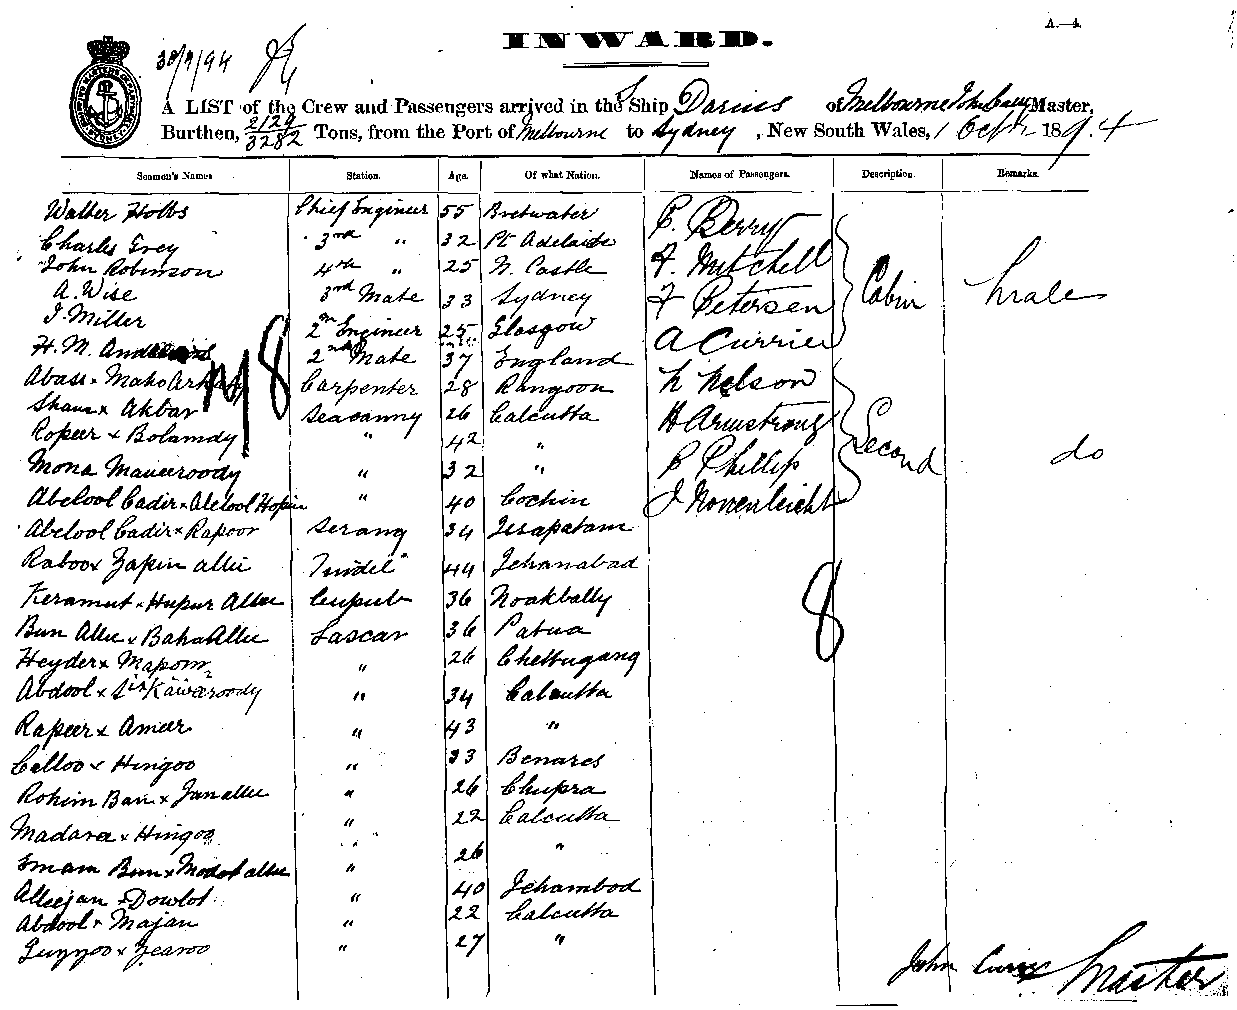 A.—4.
INWARD.
30/9/94
A LIST of the Crew and Passengers arrived in the S Ship Darius of Melbourne John Currie Master,
Burthen, 2129/3282 Tons, from the Port of Melbourne to Sydney, New South Wales, 1 Oct 1894
Seamen's Names Station. Age. Of what Nation. Names of Passengers. Description. Remarks.
Walter Hobbs Chief Engineer 55 Bretwater P. Berry
Charles Grey 3rd " 32 Pt Adelaide A. Mitchell
John Robinson 4th " 25 N. Castle F Petersen Cabin Male
A. Wise 3rd Mate 33 Sydney A Currie
J. Miller 2nd Engineer 25 Glasgow
H. M. 2nd Mate 37 England N Nelson
Abass x Carpenter 28 Rangoon H Armstrong
Shaux x Akbar Seacunny 26 Calcutta Second do
Ropeer x Bolamdy " 42 " P Phillip
Mona Maueeroody " 32 " J
Abelool Cadir x Abelool " 40 Cochin
Abelool Cadir x Rapoor Serang 34
Raboo x Zapin allie Tindel 44 Jehanabad
Keramut x Hupur Allee 36 Noakhally
Bun Allie x Baha Allie Lascar 36 Patua
Heyder x Mapoom " 26 Chettugang
Abdool x Sir Kawaroody " 34 Calcutta
Rapeer x Ameer " 43 "
Calloo x Hingoo " 33 Benares
Rohim Bax x Jan allie " 26 Chupra
Madara x Hingoo " 22 Calcutta
Emam Bux x " 26 "
Alleejan x Dowlot " 40 Jehambod
Abdool x Majan " 22 Calcutta
Guyyoo x Zearoo " 27 "
8
8
John Currie Master